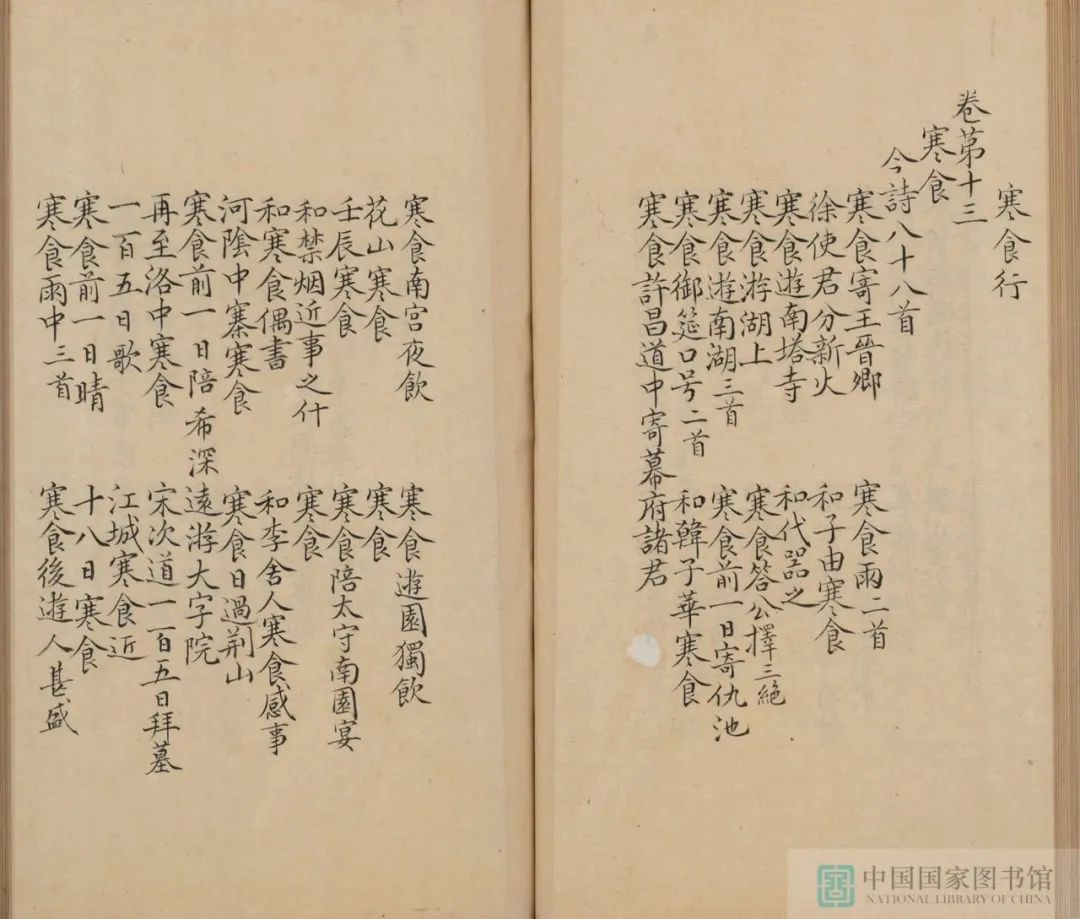 寒食行
卷苐十三
寒食
今詩八十八首
寒食寄王晉卿 寒食雨二首
徐使君分新火 和子由寒食
寒食遊南塔寺 和代器之
寒食游湖上 寒食答公擇三絕
寒食遊南湖三首 寒食前一日寄仇池
寒食御筵口号二首 和韓子華寒食
寒食許昌道中寄幕府諸君
寒食南宮夜飲 寒食遊園獨飲
花山寒食 寒食
壬辰寒食 寒食陪太守南園宴
和禁烟近事之什 寒食
和寒食偶書 和李舍人寒食感事
河陰中寨寒食 寒食日過荆山
寒食前一日陪希深遠游大字院
再至洛中寒食 宋次道一百五日拜墓
一百五日歌 江城寒食近
寒食前一日晴 十八日寒食
寒食雨中三首 寒食後遊人甚盛
中国国家图书馆
NATIONAL LIBRARY OF CHINA